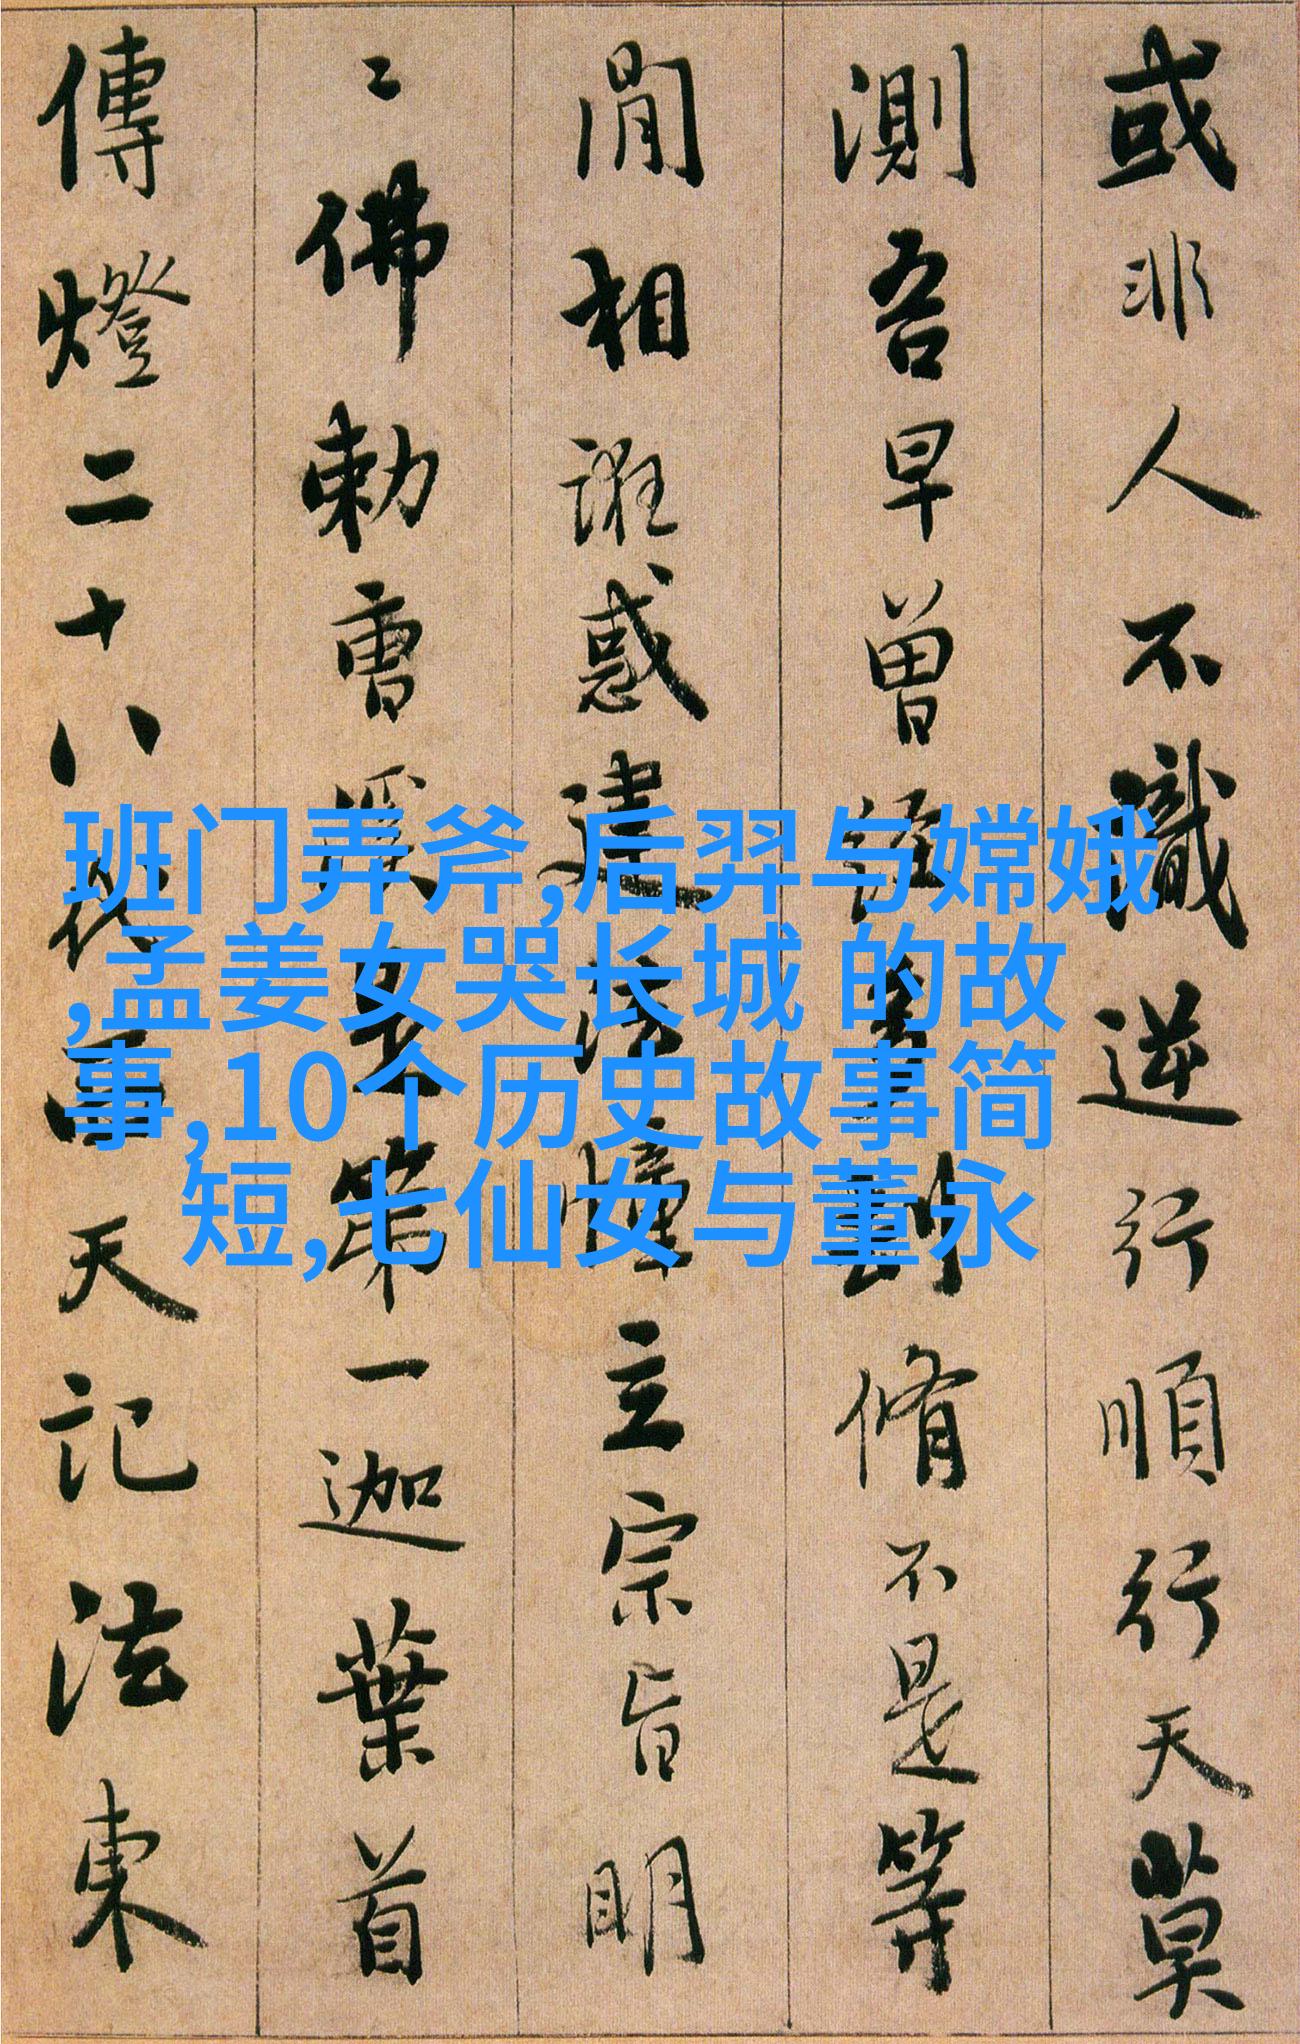 班门弄斧,后羿与嫦娥
,孟姜女哭长城 的故
事,10个历史故事简
短,七仙女与董永
或非人不識逆行順行天莫
測吾早曾經多劫脩不是等
閒相誑惑建法幢立宗旨明
〻佛勅曹溪是第一迦葉首
傳燈二十八代西天記法東